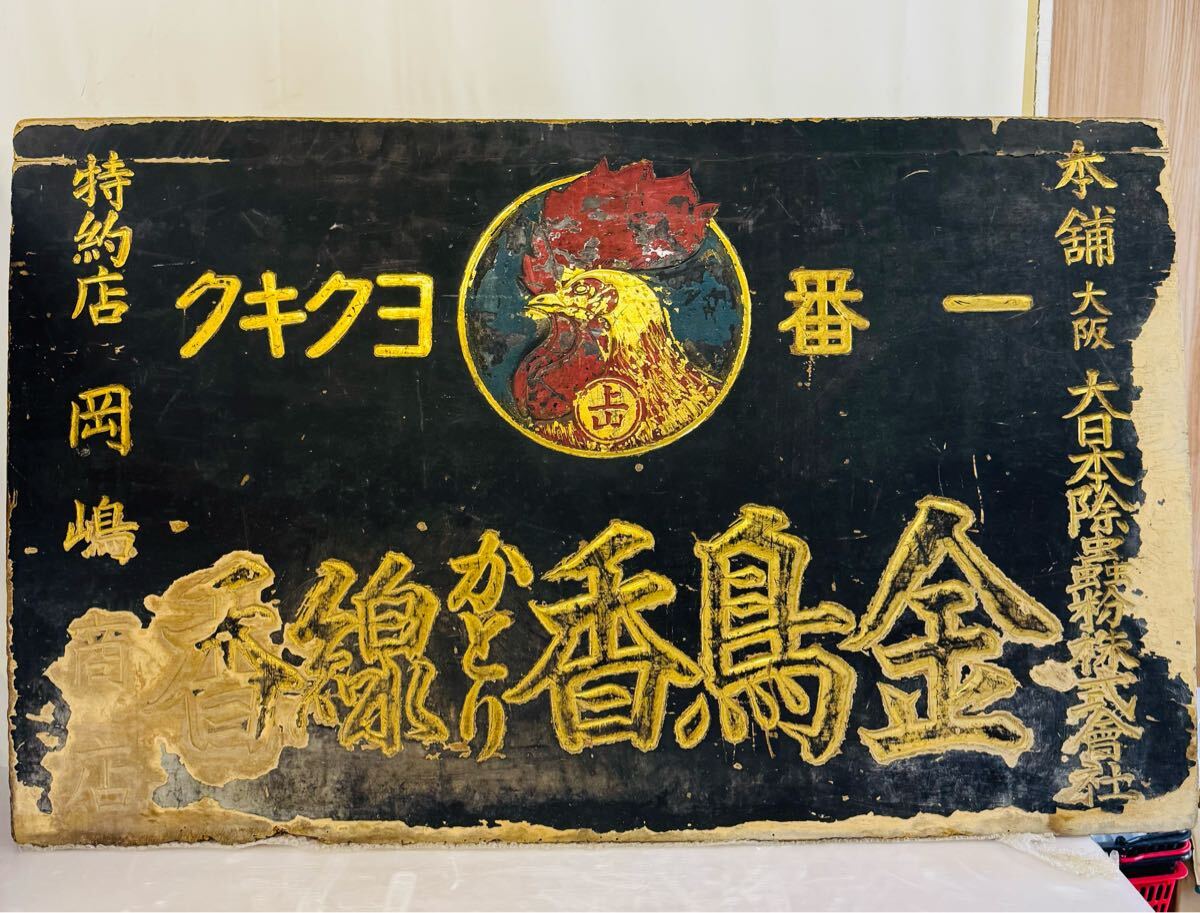 本舗 大阪 大日本除蟲粉株式會社
一番 ヨクキク
上山
金鳥香かとり線香
特約店 岡嶋商店